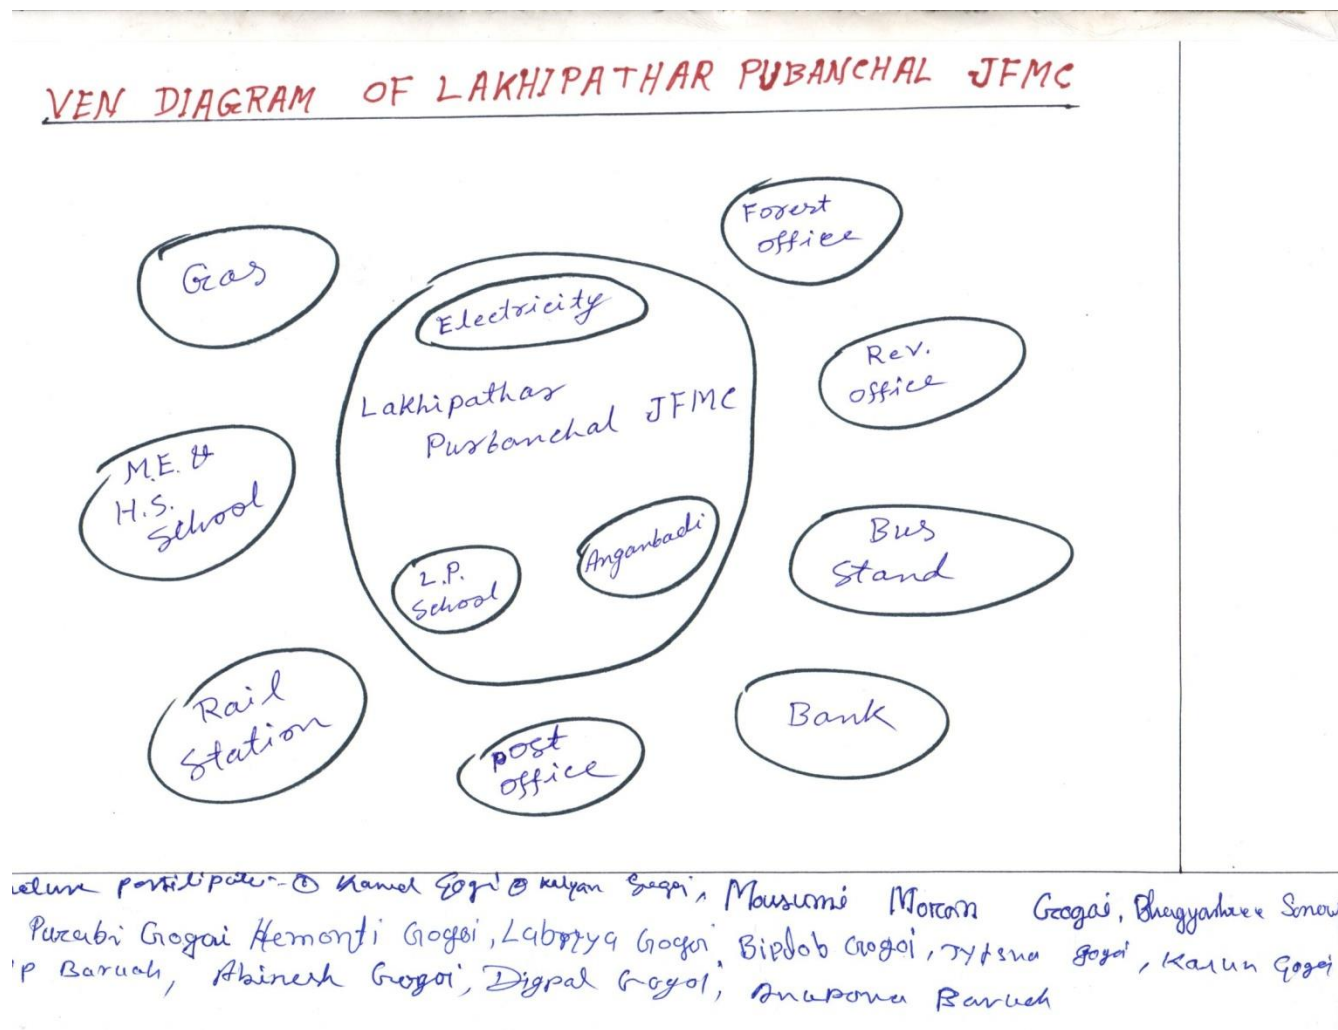 VEN DIAGRAM OF LAKHIPATHAR PUBANCHAL JFMC
Forest
office
Gas
Electricity
Rev.
office
Lakhipathar
Purbanchal JFMC
M.E. &
H.S.
School
Bus
Stand
Anganbadi
L.P.
School
Rail
Station
Bank
post
office
Kamal Gogoi ② Kalyan Gogoi, Mousumi Moran Gogai, Bhagyashree Sonow
Purabi Gogoi Hemonti Gogoi, Gogoi, Gogoi, Gogoi, Karun Gogoi
P Baruah, Abinesh Gogoi, Digpal Gogoi, Anupoma Baruah